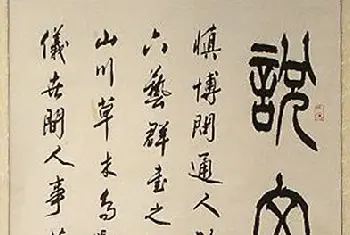 說文
慎博問通人
六藝群書之
山川草木鳥
儀世間人事